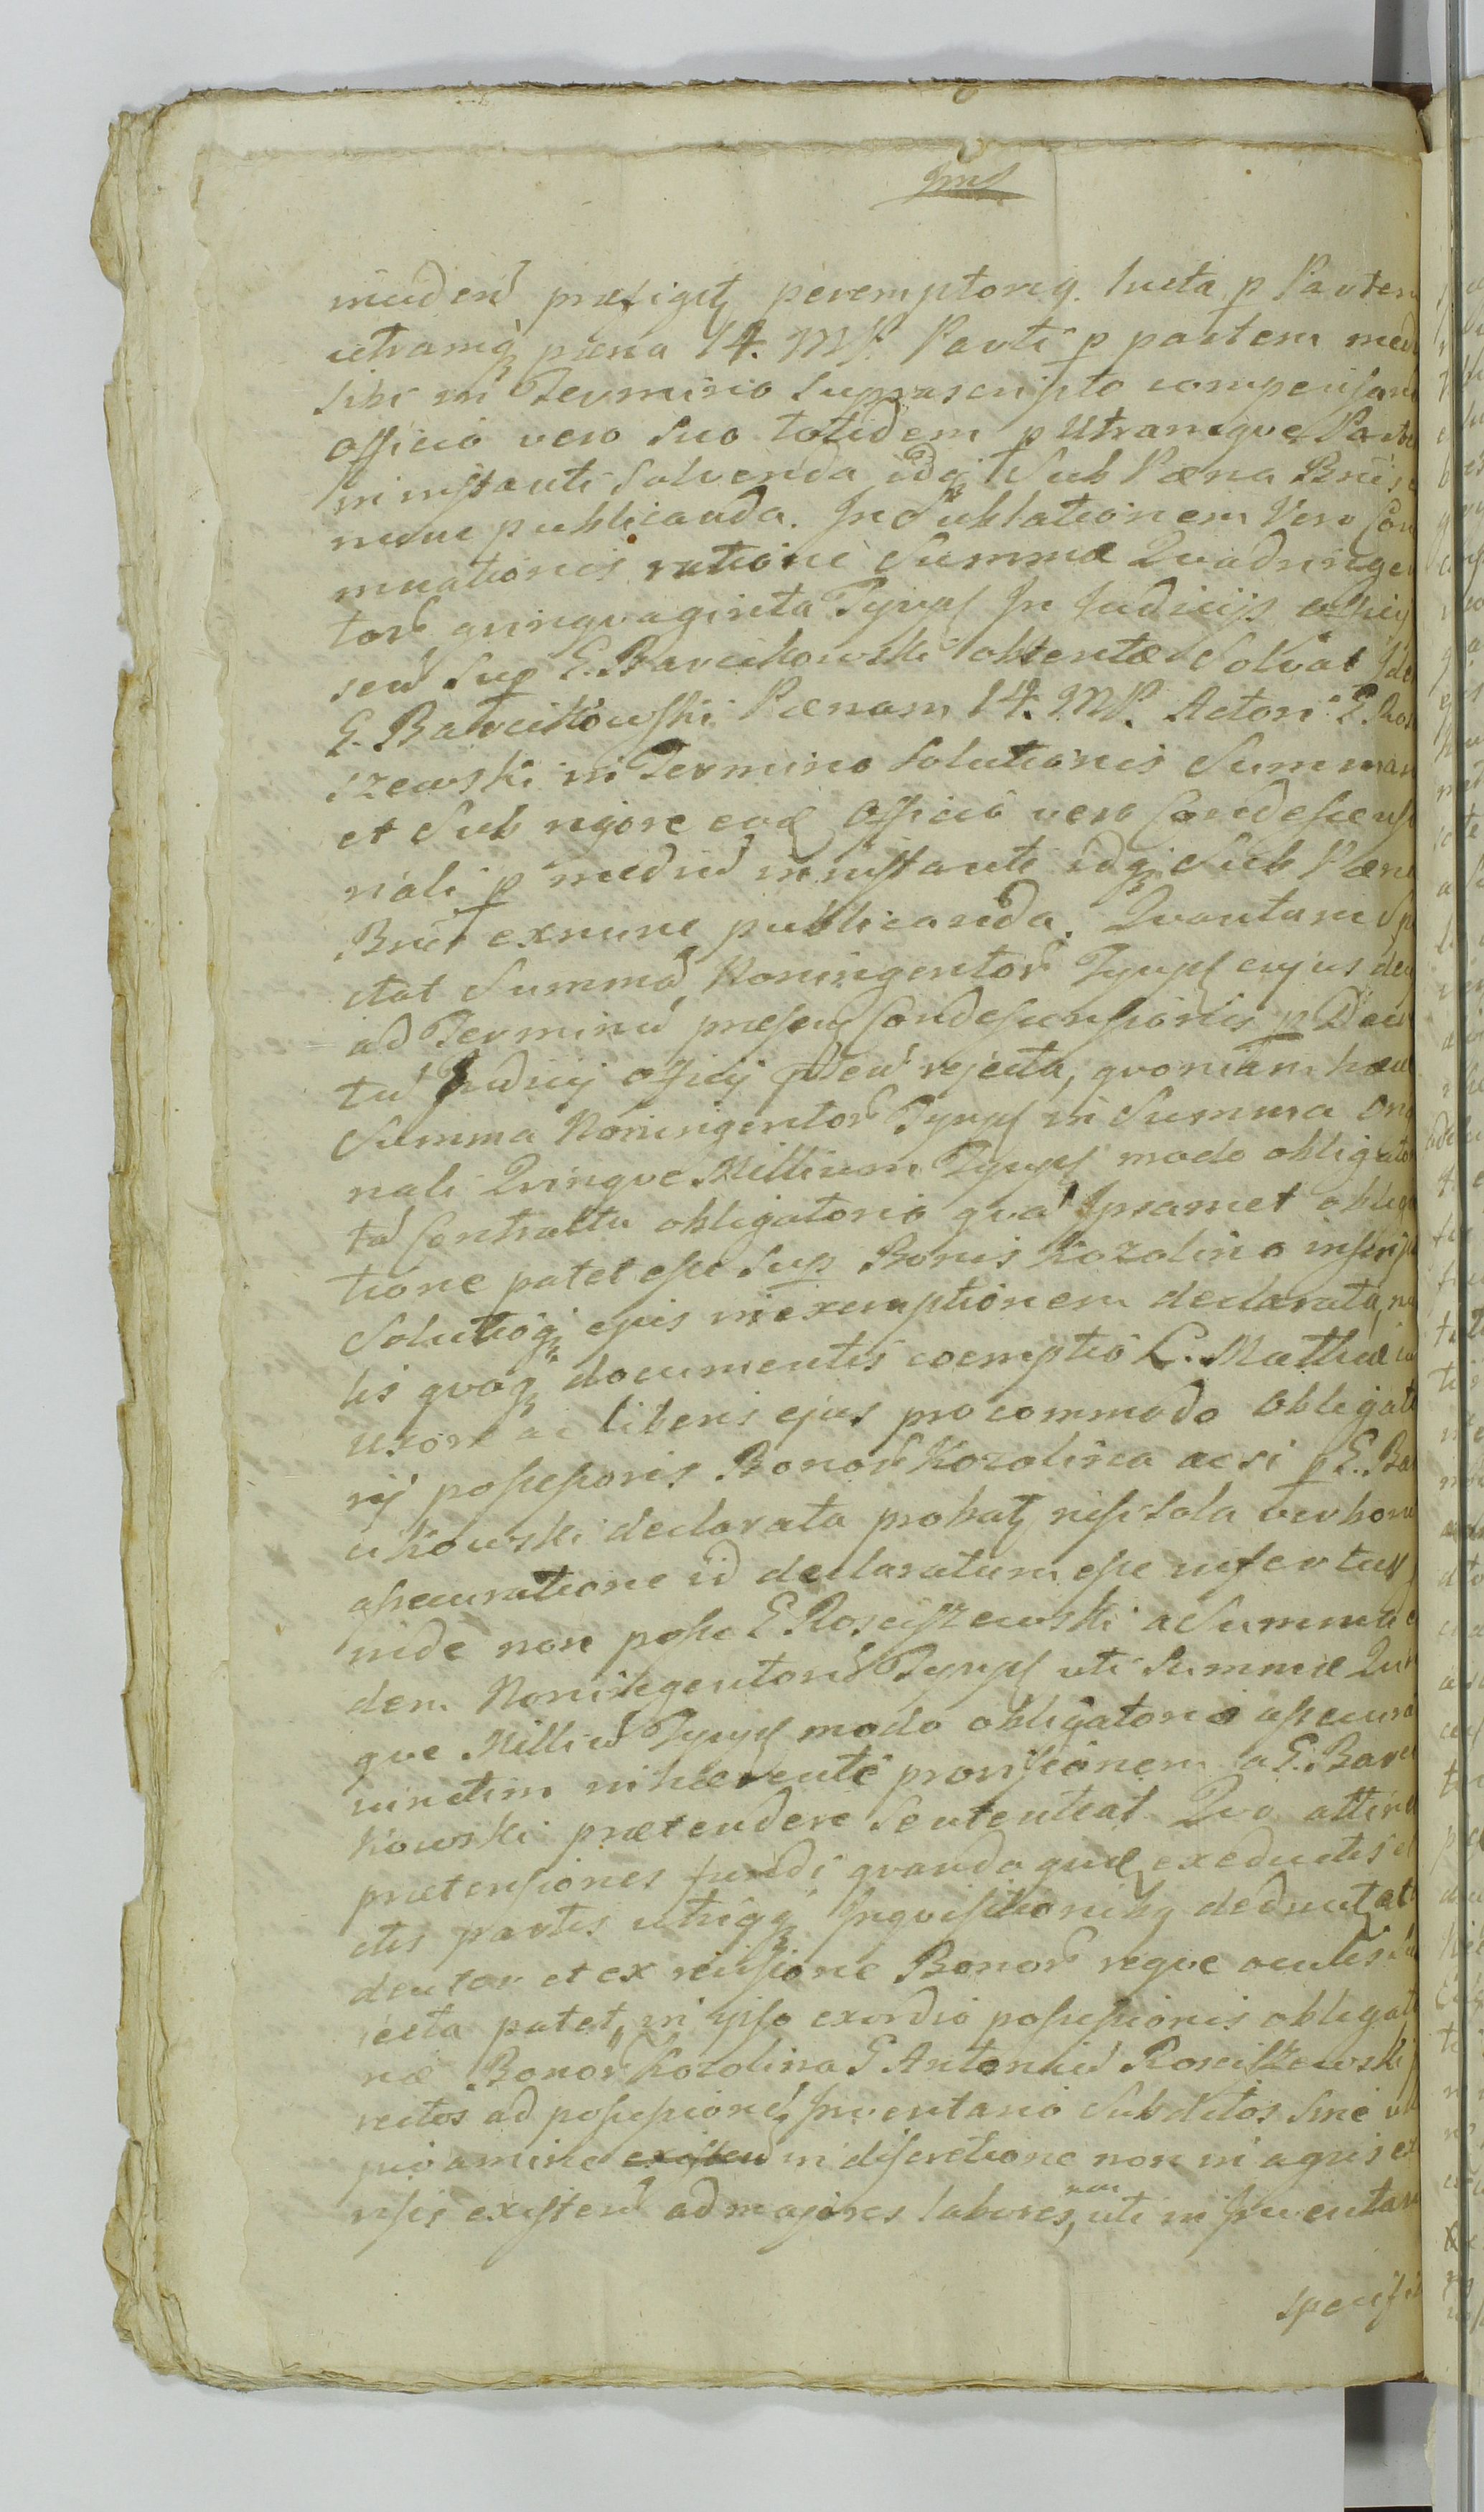 muden̄ præfigitʒ peremptorie. lucta p Partem
utramqʒ pæna 14. MP. Parti p partem med
sibi in Termino suprascripto compensan
officio vero suo totidem p Utramque Parte
in instanti solvenda idqʒ sub Pæna Bnis
nunc publicanda. In Sublationem Vero Con
mnationis ratione Summæ Quadringen
tor̄ qvinqvaginta Tynph In Judicijs officij
sen̄ Sup E. Barcikowski obtentæ Solvat Ide
E. Barcikowski Pænam 14. MP. Actori E. Ros
szewski in Termino solutionis Summar
et sub rigore eod̄ Officio vero Condescens
riali p mediū in instanti idqʒ sub Pæna
Bnis exnunc publicanda. Qvantum Sp
ctat Summā Noningentor̄ Tynph cujus de
ad Terminū præsen̄ Condescensionis p Dec
tū Judicij officij pten̄ rejecta, qvoniam hæc
Summa Noningentor̄ Tynph in Summa Ori
nali Qvinqve Millium Tynph modo obligato
tā Contractu obligatorio qvā Ipsamet obliga
tione patet esse Sup Bonis Kozolin o inscrip
Solutioqʒ ejus in exemptionem declarata, nu
lis qvoqʒ documentis coemptio L. Mathiæ cu
uxore ac liberis ejus pro commodo Obligato
rij possessoris Bonor̄ Kozolina ac si p E. Bar
cikowski declarata probatʒ nisi sola verbon
assecuratione id declaratum esse infertur
inde non posse E Rosciszewski a Summa e
dem Noningentorū Tynph uti Summæ Qvin
qve Milliū Tynph modo obligatorio assecura
cunctim inhærenti provisionem a E. Barci
kowski prætendere Sententiat. Qvo attine
prætensiones fundi qvando qvidē exeductis e
ctis partis utriqʒ Inqvisitionibʒ deducitʒ at
dentor et ex revisione Bonor̄ reqve oculis su
iecta patet, in ipso exordio possessionis obligato
riæ Bonor̄ Kozolina E Antoniū Rosciszewski
rectos ad possessionē Inventario Subditos sine ull
gravamine existen̄ in discretione non in agris et
nsis existen̄ ad majores labores, non uti in Inventari
specifi